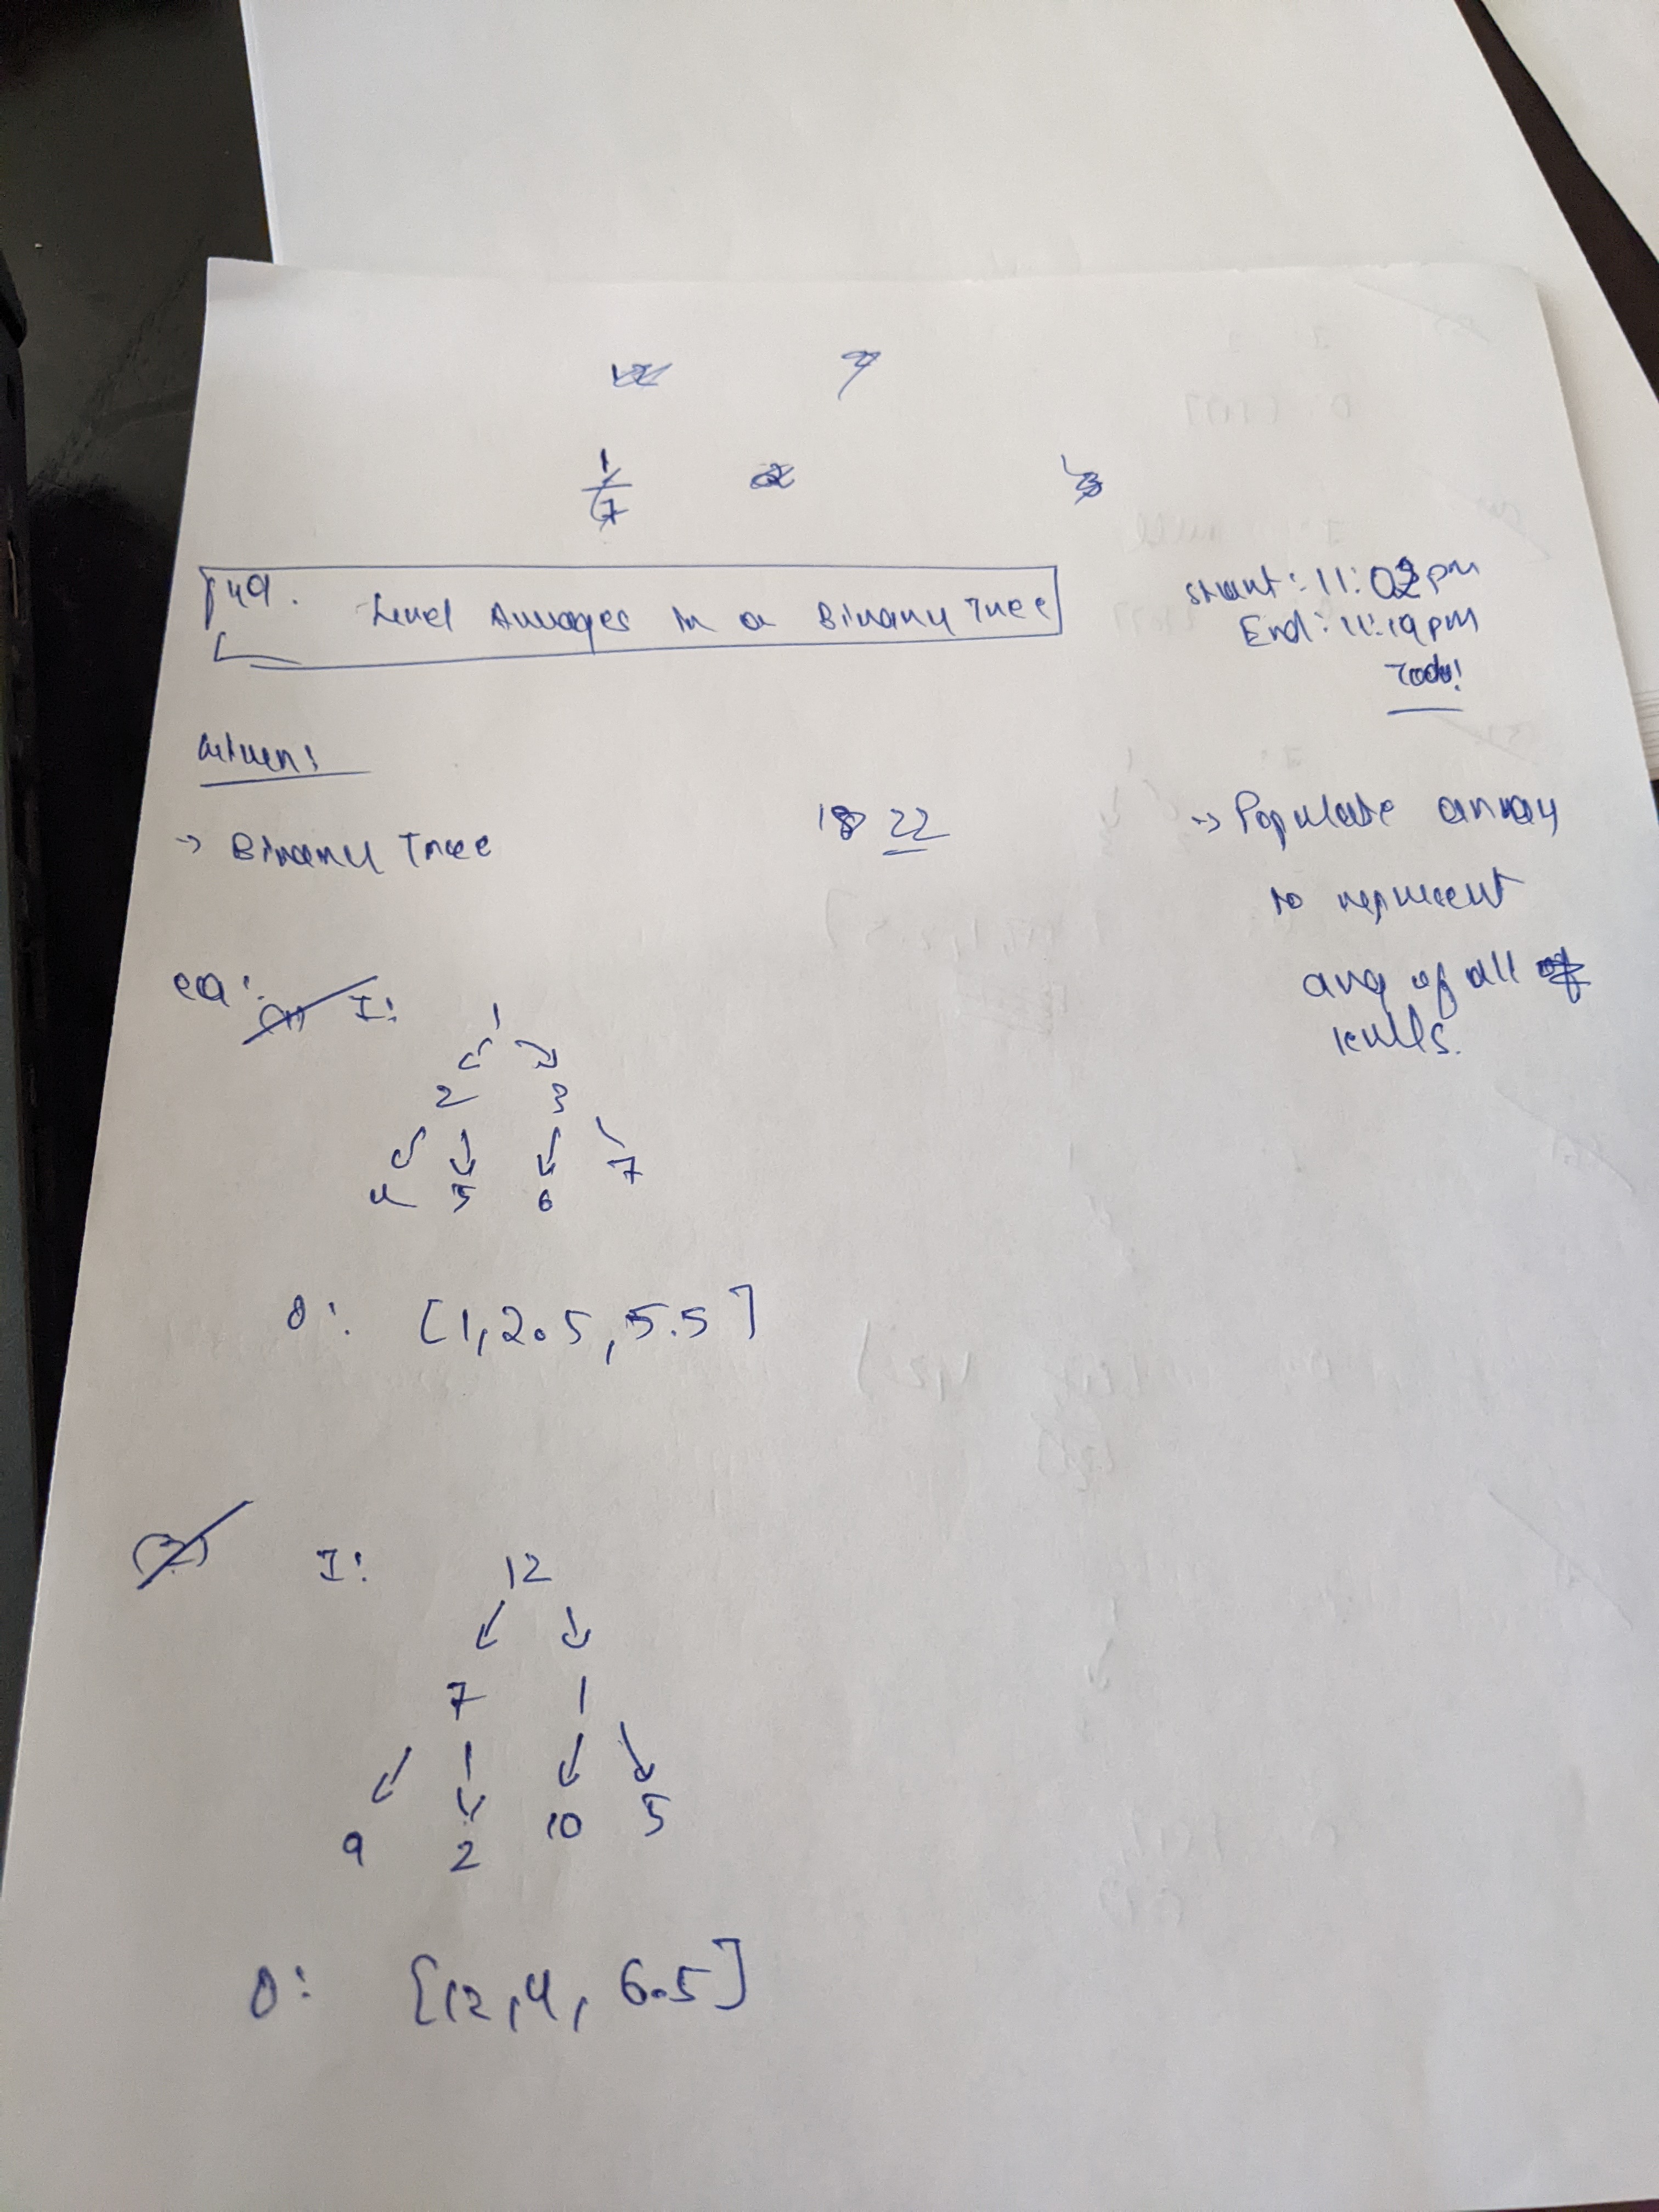 1
7
149. Level Averages in a Binary Tree
Start: 11:02 pm
End: 11:19 pm
Today!
Given:
-> Binary Tree
18 22
-> Populate array
to represent
avg of all
levels.
eg:
(1) I:
1
2 3
4 5 6 7
O: [1, 2.5, 5.5]
(2) I: 12
7 1
9 2 10 5
O: [12, 4, 6.5]